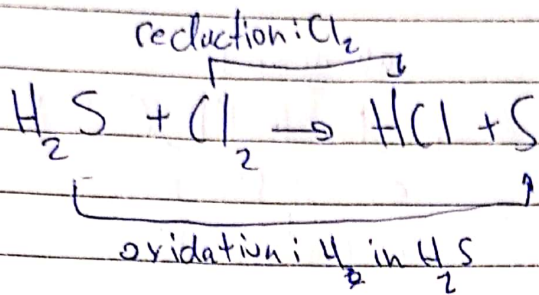 reduction: Cl₂
H₂S + Cl₂ → HCl + S
oxidation: H₂ in H₂S